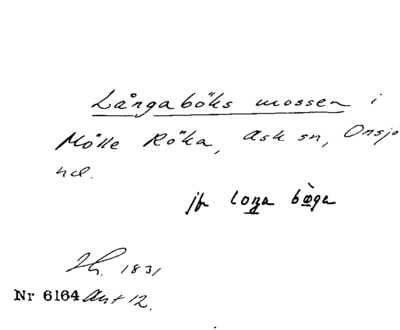 Långaböks mossen i
Mölle Röka, Ask sn, Onsjö
hd.
jfr loŋa bøga
Th. 1831
Nr 6164 Akt 12.